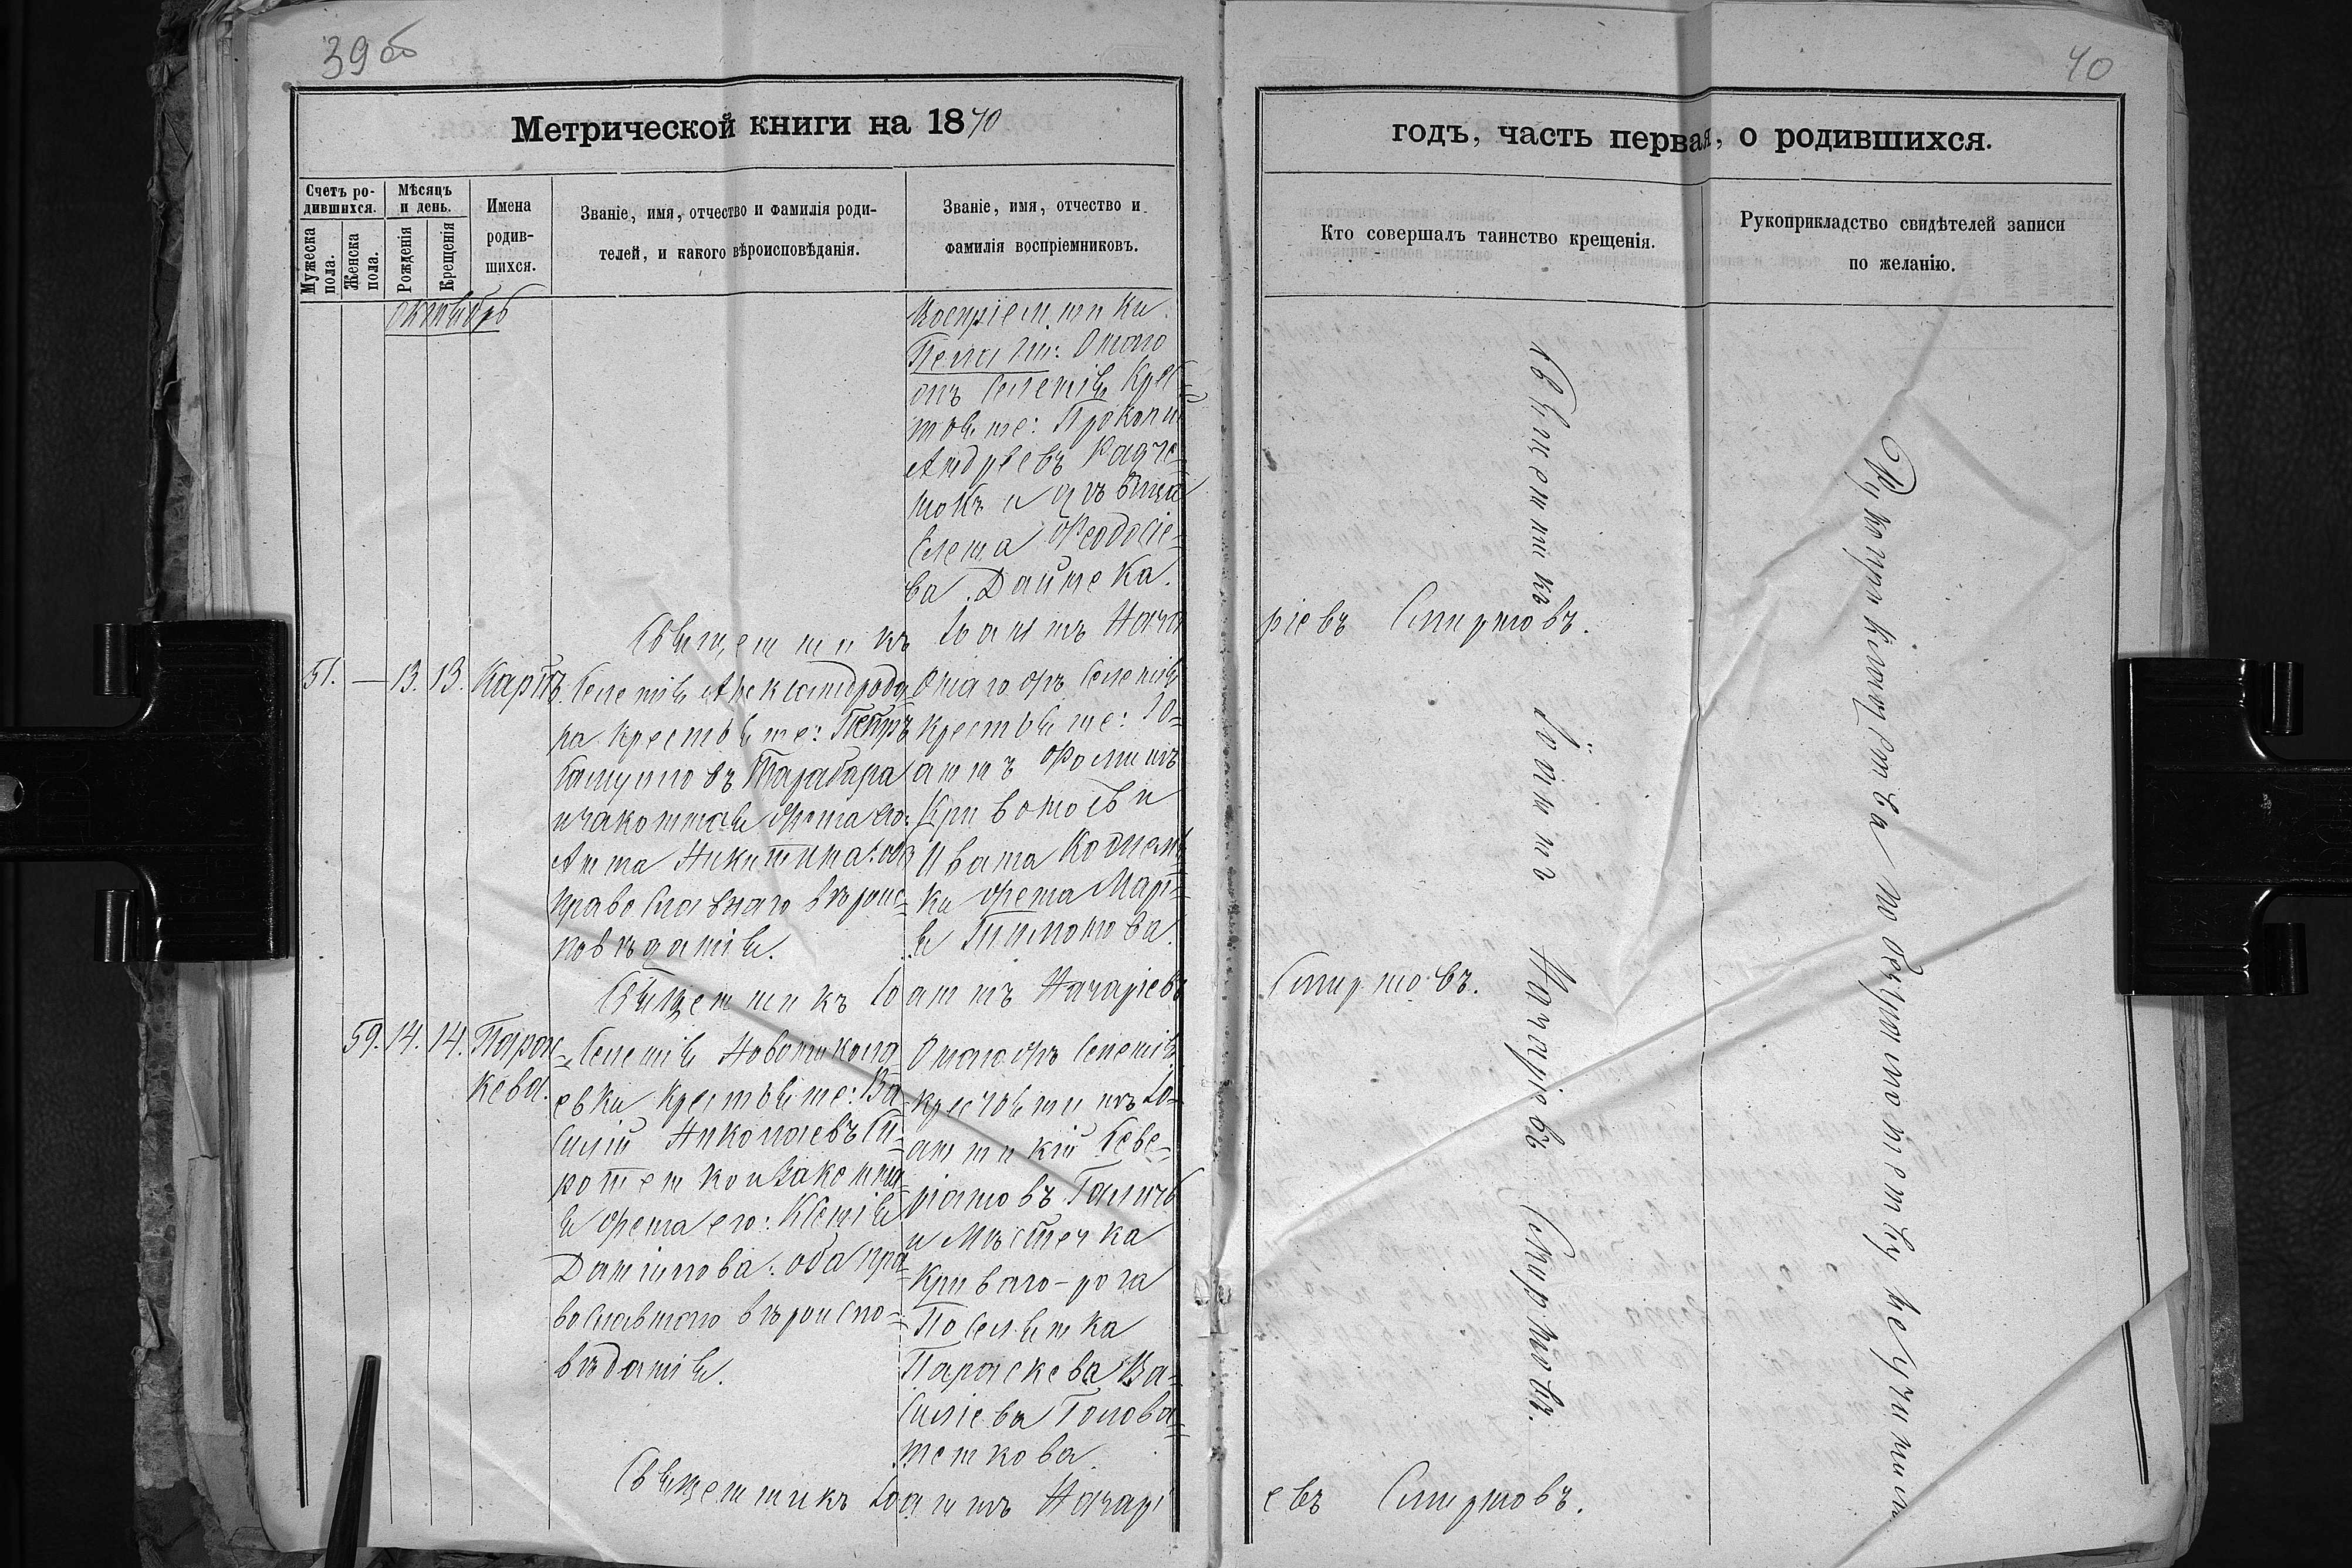 39 об
40
Метрической книги на 1870
годъ, часть первая, о родившихся.
Счетъ ро-
дившихся.
Мужеска пола.
Женска пола.
Мѣсяцъ
и день.
Рожденія
Крещенія
Имена
родив-
шихся.
Званіе, имя, отчество и фамилія роди-
телей, и какого вѣроисповѣданія.
Званіе, имя, отчество и
фамилія воспріемниковъ.
Кто совершалъ таинство крещенія.
Рукоприкладство свидѣтелей записи
по желанію.
октябрь
Воспріемники
Онаго
жъ Селенія Крес-
тьяне: Прокопій
Андреевъ
и дѣвица
Елена Феодосіе-
ва Дайнека.
Священникъ Іоаннъ Наза
ріевъ Смирновъ.
51. — 13. 13. Карпъ.
Селенія Александрода
ра крестьяне: Петръ
Тарабара
и законная жена его:
Анна Никитина: оба
православнаго вѣроис-
повѣданія.
Онаго жъ Селенія
крестьяне: Іо-
аннъ Фоминъ
и
Ивана
ки жена Марі-
я Тимонова.
Священникъ Іоаннъ Назаріевъ
Смирновъ.
59. 14. 14. Парас-
кева.
Селенія Новониколa
евки крестьяне: Ва
силій Николаевъ Си-
ротенко и законна-
я жена его: Ксенія
Даніилова: оба пра-
вославнаго вѣроиспо-
вѣданія.
Онаго жъ Селенія
крестьянинъ Іо-
анникій Севе-
ріановъ Галичъ
и Мѣстечка
Криваго-рога
Поселянка
Параскева Ва-
силіева Голова-
тенкова.
Священникъ Іоаннъ Назарі
евъ Смирновъ.
Священникъ Іоаннъ Назаріевъ Смирновъ.
Рукоприкладства по безграмотству не учинили